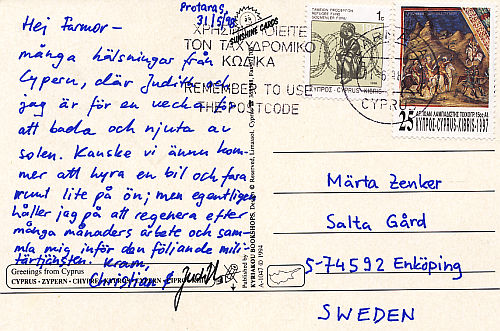 Protaras
31/5 98
Hej Farmor –
många hälsningar från
Cypern, där Judith och
jag är för en vecka för
att bada och njuta av
solen. Kanske vi ännu kom-
mer att hyra en bil och fara
runt lite på ön; men egentligen
håller jag på att regenera efter
många månaders arbete och sam-
la mig inför den följande mili-
tärtjänsten. Kram,
Christian & Judith
Greetings from Cyprus
CYPRUS - ZYPERN - CHYPRE
SUNSHINE CARDS
Published by
KYRIAKOU BOOKSHOPS, Limassol, Cyprus
A-1047 © 1994
ΧΡΗΣΙΜΟΠΟΙΕΙΤΕ
ΤΟΝ ΤΑΧΥΔΡΟΜΙΚΟ
ΚΩΔΙΚΑ
REMEMBER TO USE
THE POSTCODE
CYPRUS
REFUGEE FUND
1c
ΚΥΠΡΟΣ - CYPRUS - KIBRIS
25
ΚΥΠΡΟΣ-CYPRUS-KIBRIS-1997
Märta Zenker
Salta Gård
S-74592 Enköping
SWEDEN